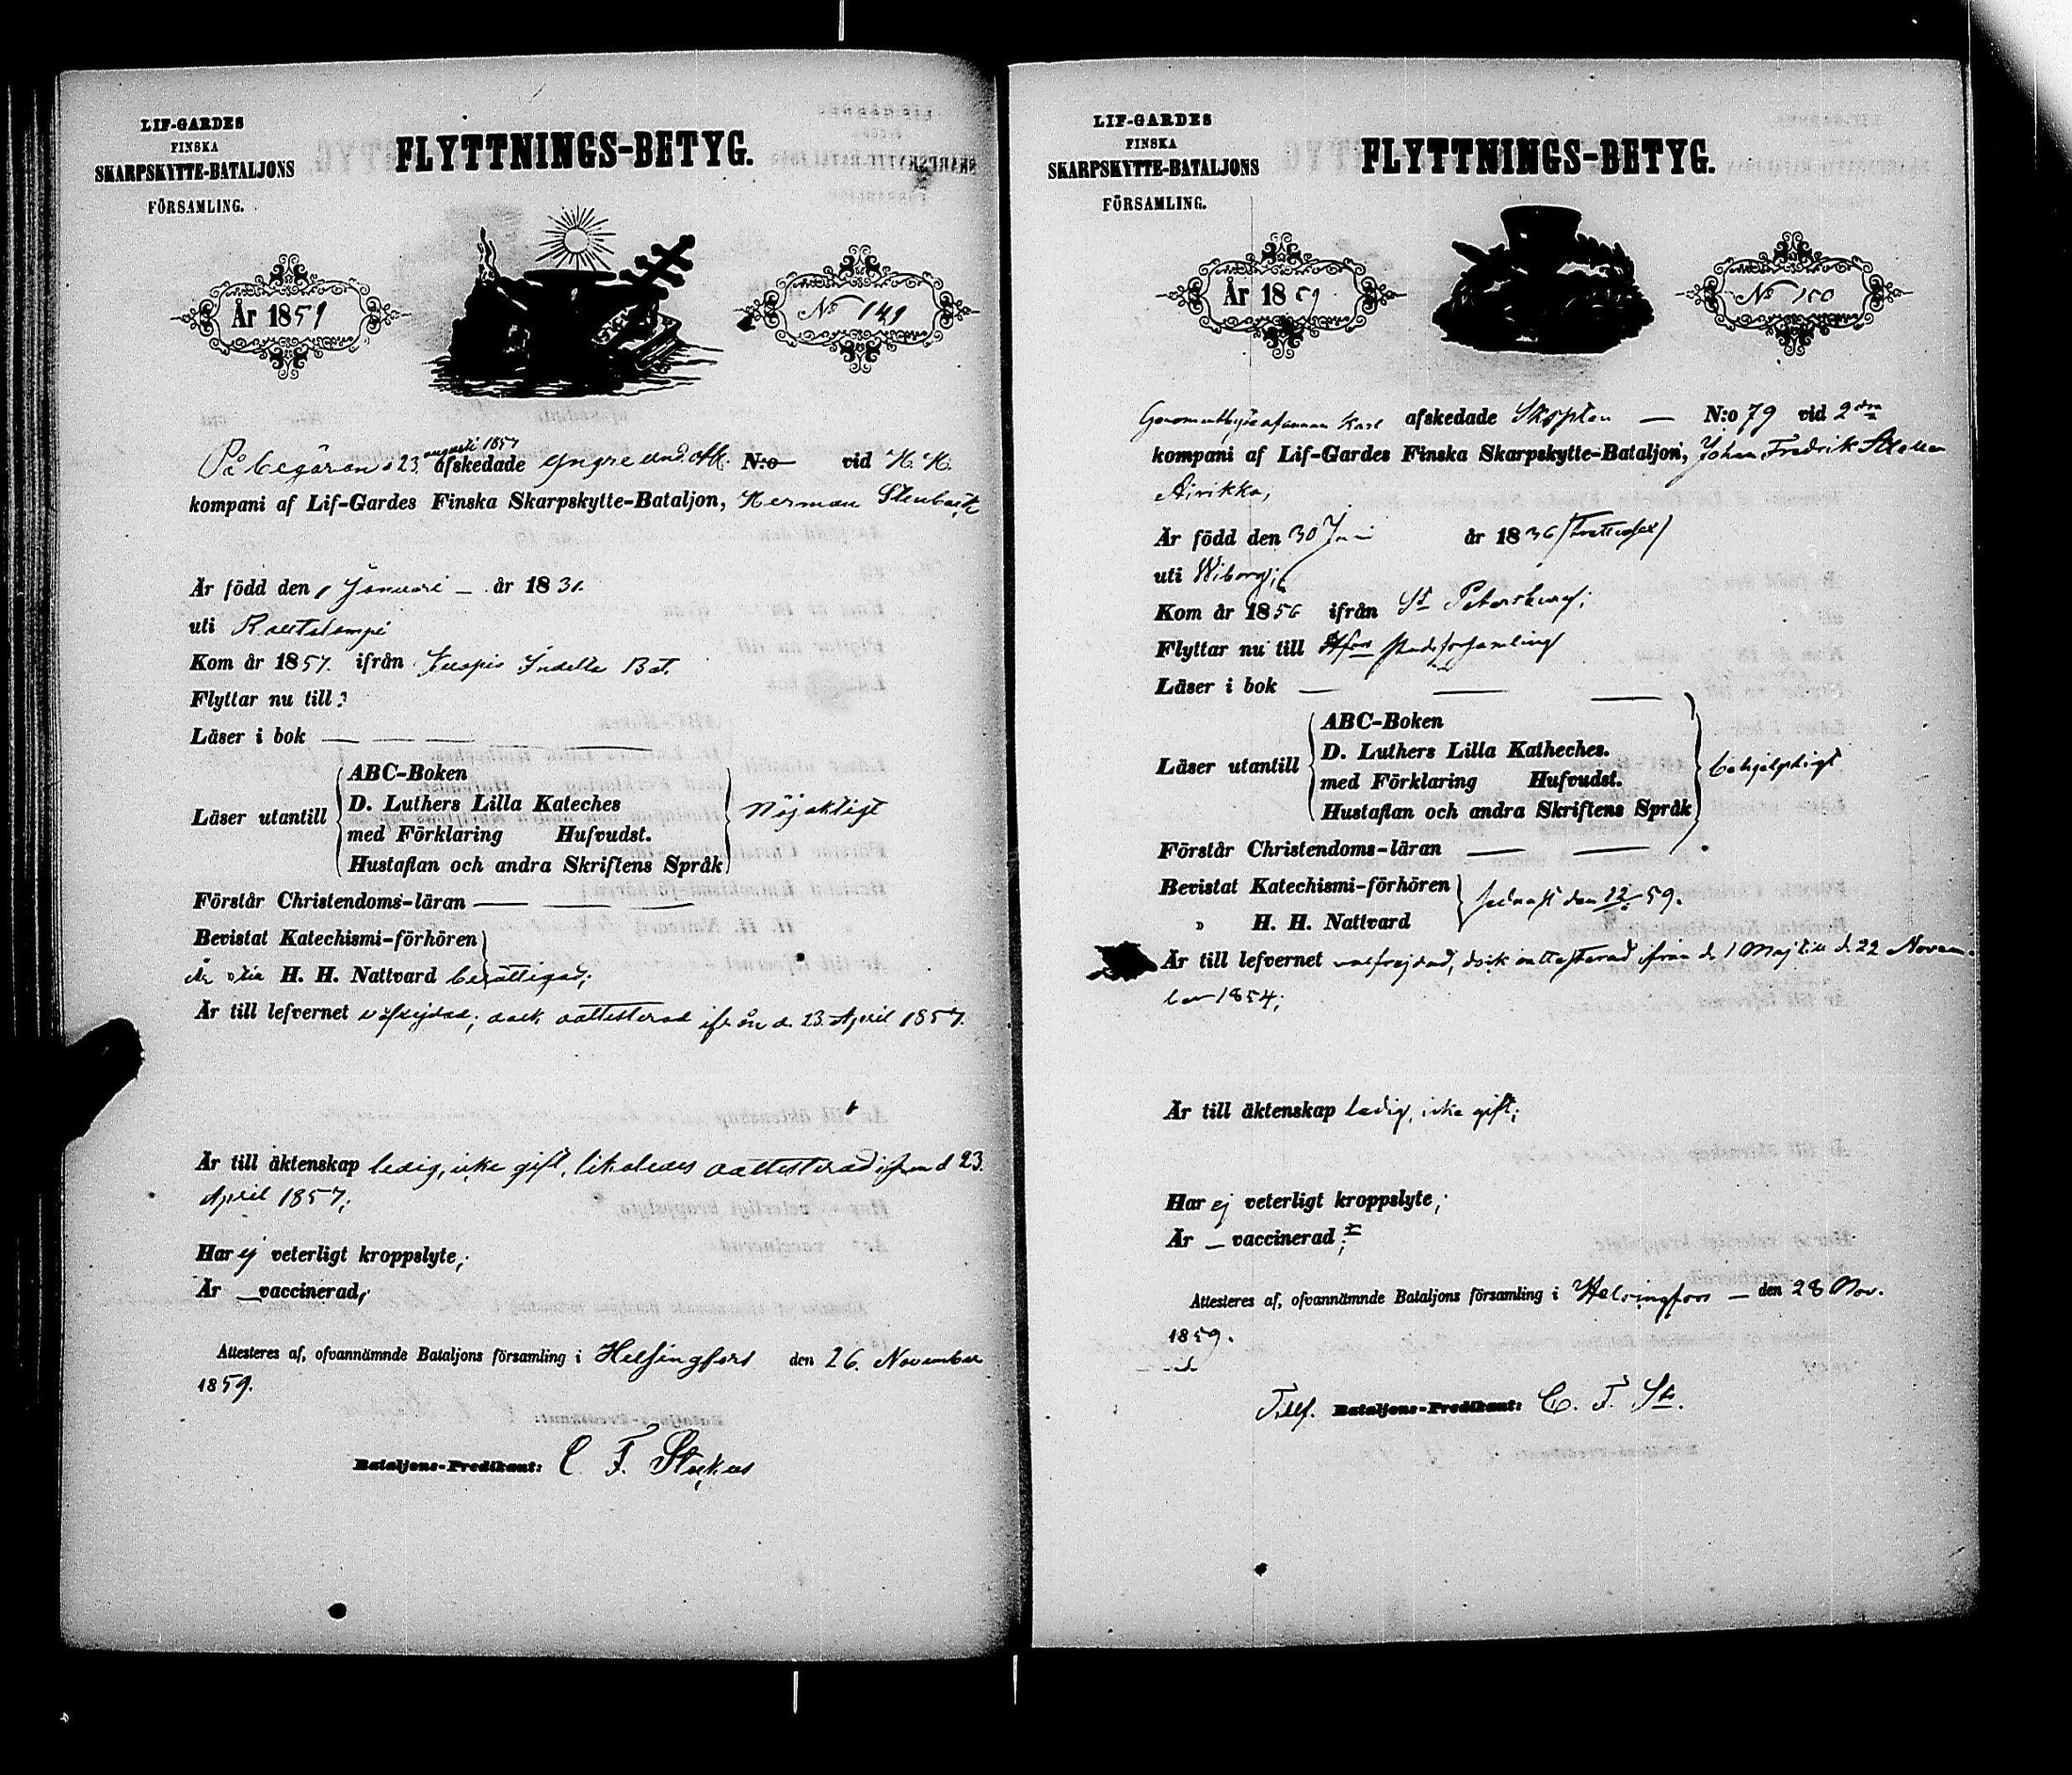 LIF-GARDES
FINSKA
SKARPSKYTTE-BATALJONS
FÖRSAMLING.
FLYTTNINGS-BETYG.
År 1859
No 149
På begäran d 23 augusti 1857 afskedade yngre und. off. N:o vid H. K.
kompani af Lif-Gardes Finska Skarpskytte-Bataljon, Herman Stenbäck
Är född den 1 Januari — år 1831.
uti Rautalampi
Kom år 1857. ifrån Kuopio Indelta Bat.
Flyttar nu till ?
Läser i bok — — —
ABC-Boken
D. Luthers Lilla Kateches
Läser utantill
med Förklaring Hufvudst.
Hustaflan och andra Skriftens Språk
Nöjaktigt
Förstår Christendoms-läran — — —
Bevistat Katechismi-förhören
Är till H. H. Nattvard berättigad;
Är till lefvernet välfrejdad; dock oattesterad ifrån d. 23. April 1857.
Är till äktenskap ledig, icke gift, likaledes oattesterad ifrån d 23.
April 1857;
Har ej veterligt kroppslyte;
Är — vaccinerad;
Attesteres af, ofvannämnde Bataljons församling i Helsingfors den 26. November
1859.
Bataljons-Predikant: C. F.
LIF-GARDES
FINSKA
SKARPSKYTTE-BATALJONS
FÖRSAMLING.
FLYTTNINGS-BETYG.
År 1859
No 150
Genom utbyte af annan Karl afskedade — N:o 79 vid 2dra
kompani af Lif-Gardes Finska Skarpskytte-Bataljon, Johan Fredrik
Airikka,
Är född den 30 år 1836 (trettiosex)
uti Wiborg;
Kom år 1856 ifrån St Petersburg;
Flyttar nu till Hfors stadsförsamling
Läser i bok — — —
ABC-Boken
D. Luthers Lilla Katheches.
Läser utantill
med Förklaring Hufvudst.
Hustaflan och andra Skriftens Språk
behjelpligt
Förstår Christendoms-läran — —
Bevistat Katechismi-förhören
» H. H. Nattvard
sednast den 59.
Är till lefvernet välfrejdad, dock oattesterad ifrån d. 1 Maj till d. 22 Novem-
ber 1854;
Är till äktenskap ledig, icke gift;
Har ej veterligt kroppslyte;
Är — vaccinerad;
Attesteres af, ofvannämnde Bataljons församling i Helsingfors — den 28 Nov.
1859.
Bataljons-Predikant: C. F. St.